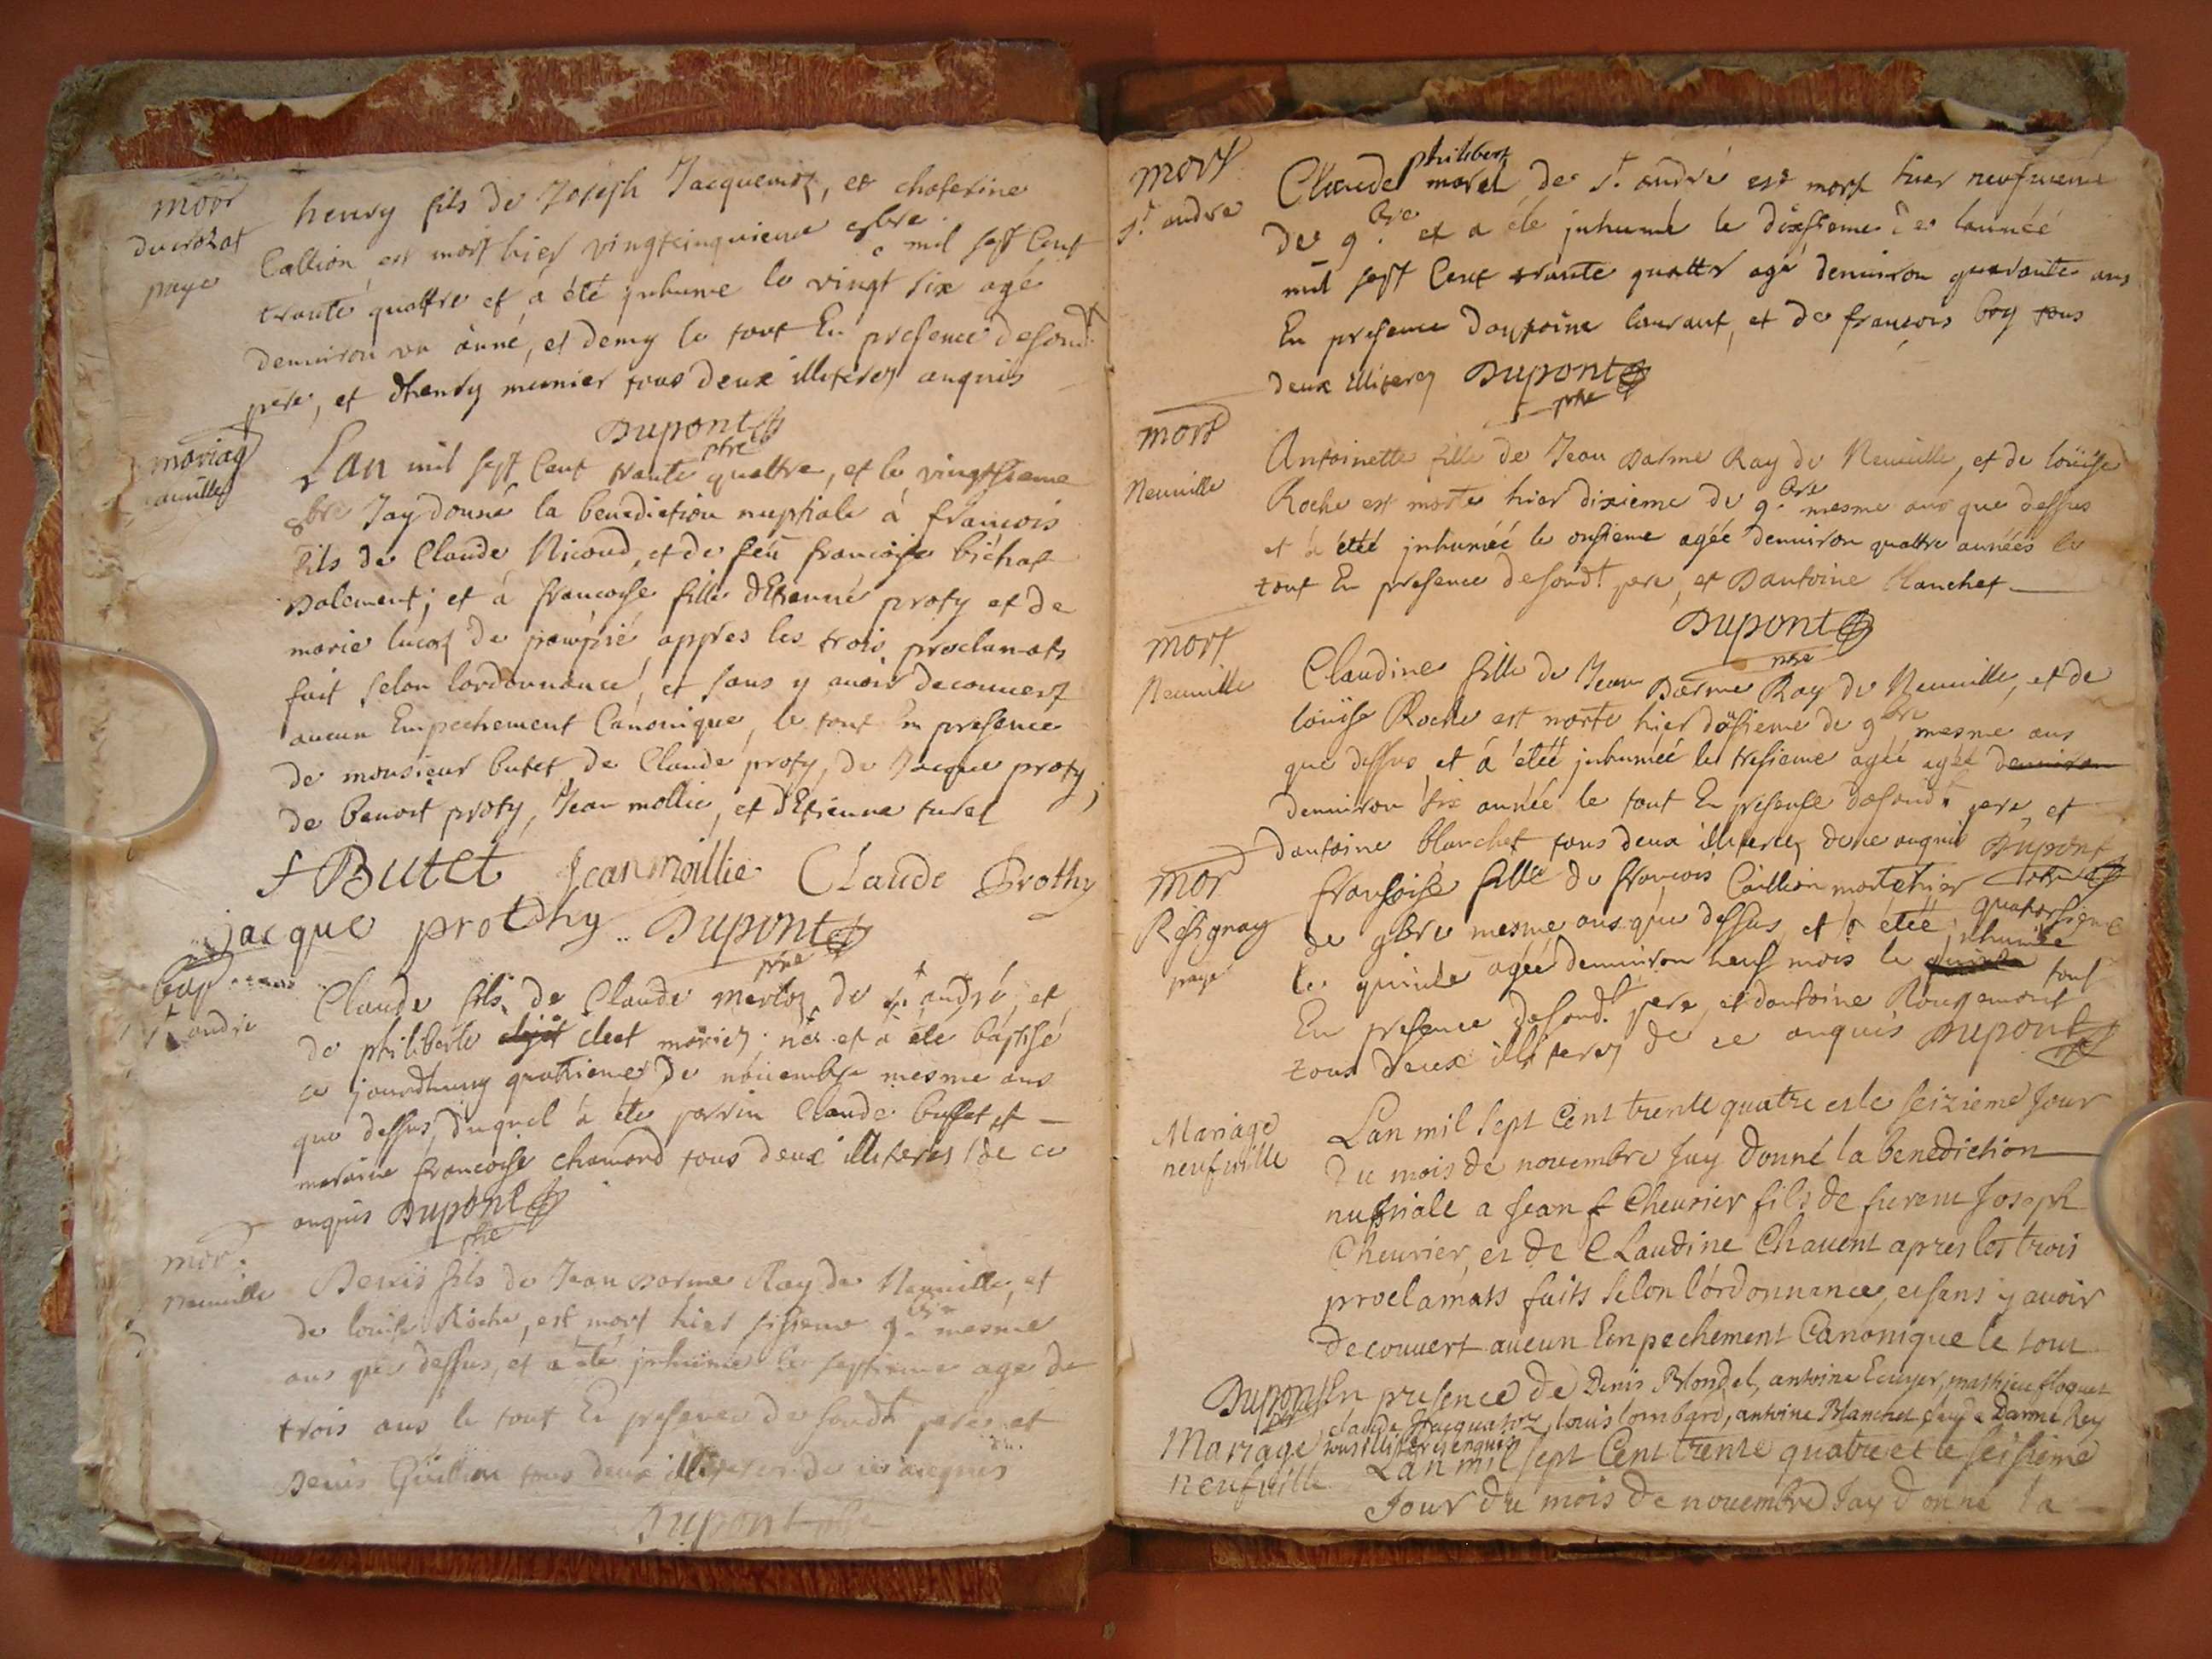 mort
du crozat
paye
henry fils de Joseph Jacquemoz, et chaterine
Callion est mort hier vingtcinquieme 8bre mil sept Cent
trante quattre et a été inhume le vingt six agé
denuiron un anné, et demy le tout En presence desond.
pere, et dhenry meunier tous deux illiterez anquis
Dupont
ptre
mariag
neuuille
Lan mil sept Cent trante quattre, et le vingtsieme
8bre Jay donné la benediction nuptiale à francois
fils de Claude Nicoud, et de feü francoise bichat
Dalement; et à francoise fille dEtienne proty et de
marie lucoz de appres les trois proclamats
fait selon lordonnance, et sans y auoir decouuert
aucun Empechement Canonique, le tout En presence
de monsieur butet de Claude proty, de Jacque proty,
de benoit proty, Jean mollie, et dEtienne turel
f Butet Jean moillie Claude Prothy
jacque protdhy Dupont
ptre
bap
st andre
Claude fils de Claude merloz de st andré, et
de philiberte clert mariez né et à été baptisé
ce jourdhuy quatrieme de nouembre mesme ans
que dessus, duquel à été parrin Claude buffet et
maraine francoise chamard tous deux illiteres de ce
anquis Dupont
ptre
mor
neuuille
Denis fils de Jean Darme Ray de Neuuille, et
de louise Roche, est mort hier sisieme 9bre mesme
ans que dessus, et a été inhume le septieme age de
trois ans le tout En presence de sondt pere et
Denis Guillion tous deux illiterez de ce anquis
Dupont ptre
mort
st andre
Claude philibert morel de st andré est mort hier neufuieme
de 9bre et a été inhumé le dixsieme de lannéé
mil sept Cent trante quattr agé denuiron quarante ans
En presence dantoine laurant, et de francois boy tous
deux illiterez Dupont
ptre
mort
Neuuille
Antoinette fille de Jean Darme Ray de Neuuille, et de loüise
Roche est morte hier dixieme de 9bre mesme ans que dessus
et à étéé inhuméé le onsieme agéé denuiron quattre annéés le
tout En presence desondt pere, et Dantoine blanchet
Dupont
ptre
mort
Neuuille
Claudine fille de Jean Darme Ray de Neuuille, et de
loüise Roche est morte hier dousieme de 9bre mesme ans
que dessus et à étéé inhuméé le tresieme agéé agéé denuiron
denuiron six année le tout En presense desondt pere, et
dantoine blanchet tous deux illiterez de ce anquis Dupont
ptre
mor
Resignay
paye
fransoise fille de francois Caillion morte hier quatorsieme
de 9bre mesme ans que dessus, et à étéé inhuméé
le quinse agéé denuiron neuf mois le tout
En presence desondt pere, et dantoine Rougemont
tous deux illiterez de ce anquis Dupont
Mariage
neufuille
Lan mil sept Cent trente quatre et le seizieme Jour
du mois de nouembre Jay donné la benediction
nuptiale a Jean f Cheurier fils de furent Joseph
Cheurier, et de CLaudine Chauent apres les trois
proclamats faits selon lordonnance, et sans y auoir
decouuert aucun Empechement Canonique le tout
En presence de Denis Blondel, antoine Ecuyer, mathieu floquet
claude Jacquatoz, louis lombard, antoine Blanchet Darme Rey
tous illiterez enquis
Dupont
ptre
Mariage
neufuille
Lan mil sept Cent trente quatre et le seisieme
Jour du mois de nouembre Jay donné la